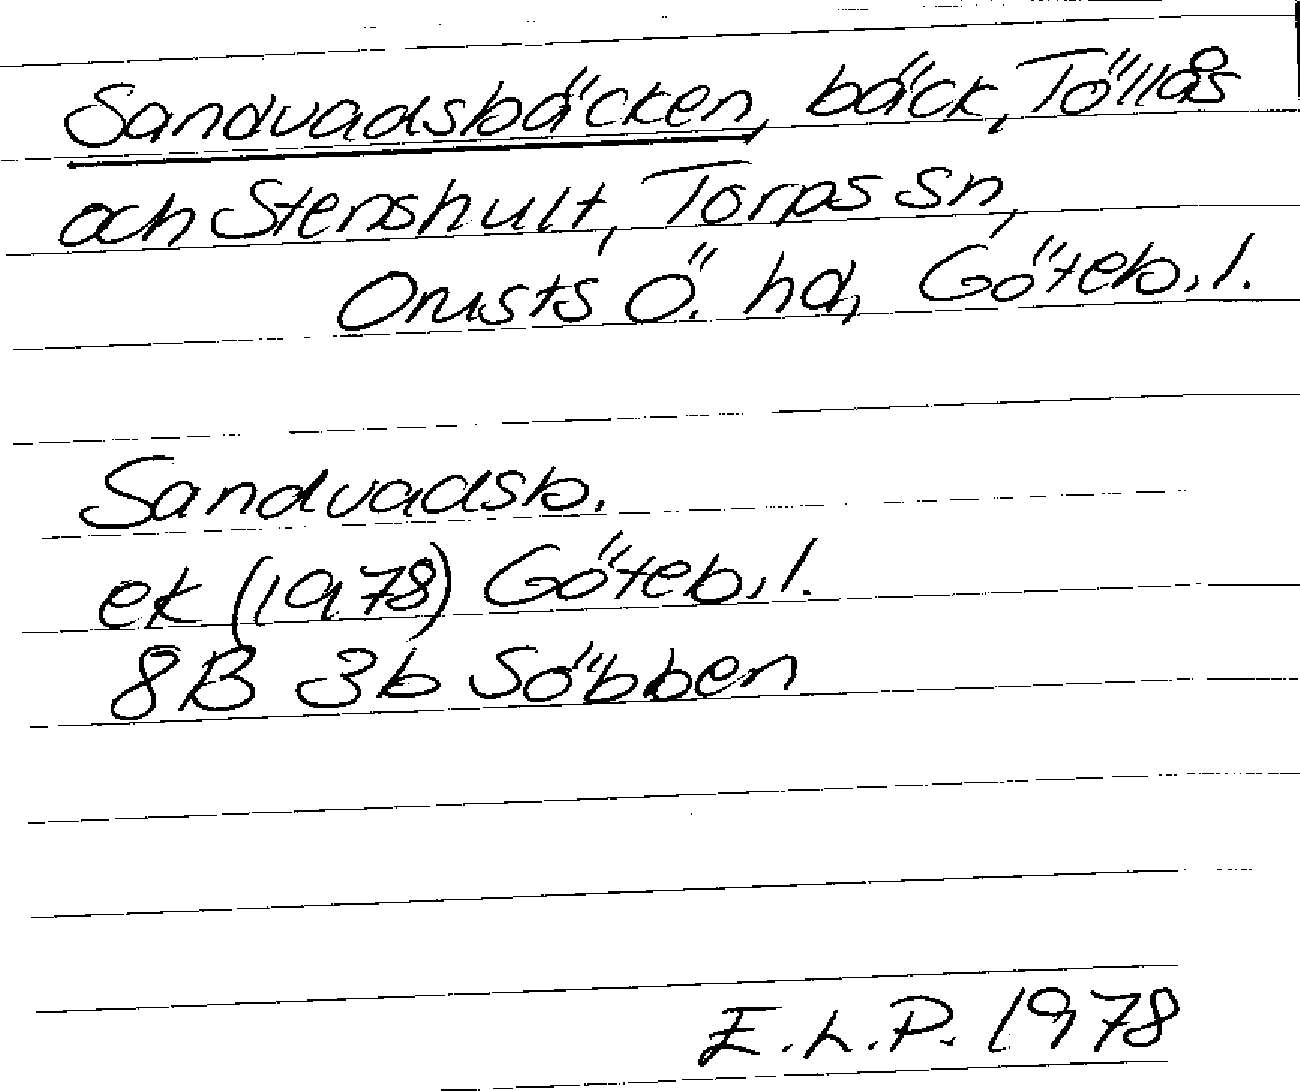 Sandvadsbäcken, bäck, Töllås
och Stenshult, Torps sn,
Orusts Ö. hd, Göteb. l.
Sandvadsb.
ek (1978) Göteb. l.
8B 3b Söbben
E.L.P. 1978